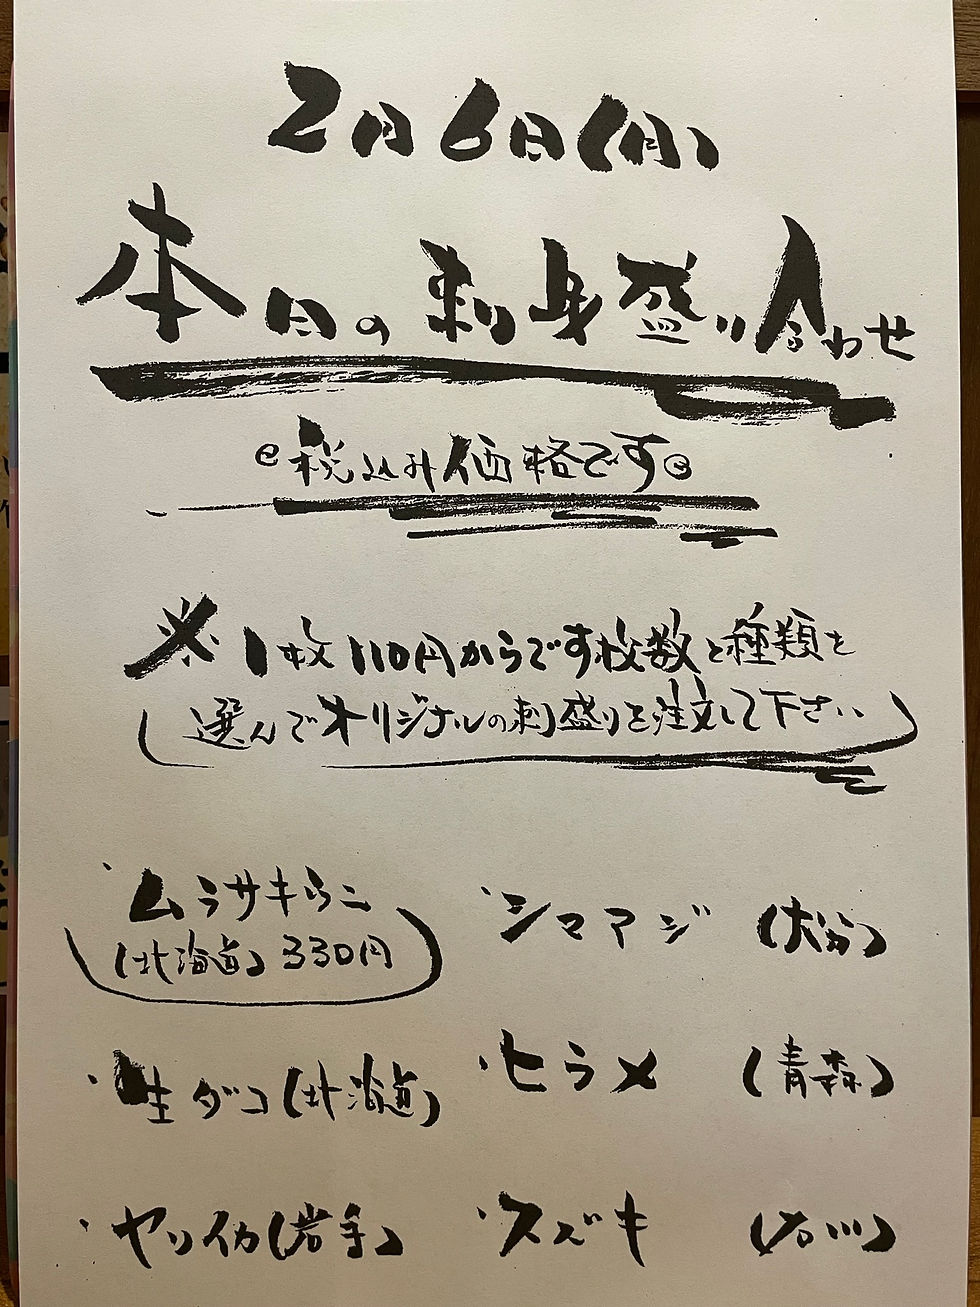 2月6日(月)
本日の刺身盛り合わせ
税込み価格です
※1枚110円からです枚数と種類を
選んでオリジナルの刺盛りを注文して下さい
・ムラサキウニ
(北海道)330円
・シマアジ (大分)
・生ダコ(北海道)
・ヒラメ (青森)
・ヤリイカ(岩手)
・スズキ (石川)